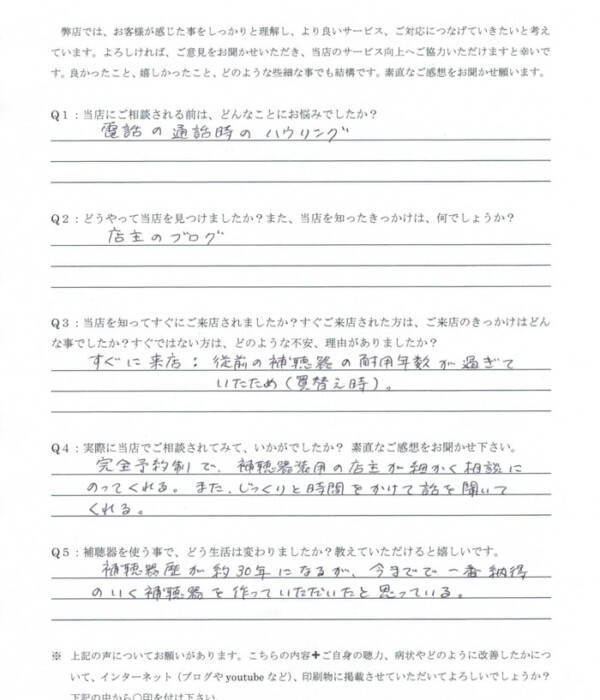 弊店では、お客様が感じた事をしっかりと理解し、より良いサービス、ご対応につなげていきたいと考え
ています。よろしければ、ご意見をお聞かせいただき、当店のサービス向上へご協力いただけますと幸いで
す。良かったこと、嬉しかったこと、どのような些細な事でも結構です。素直なご感想をお聞かせ願います。
Q1：当店にご相談される前は、どんなことにお悩みでしたか？
電話の通話時のハウリング
Q2：どうやって当店を見つけましたか？また、当店を知ったきっかけは、何でしょうか？
店主のブログ
Q3：当店を知ってすぐにご来店されましたか？すぐご来店された方は、ご来店のきっかけはどん
な事でしたか？すぐではない方は、どのような不安、理由がありましたか？
すぐに来店：従前の補聴器の耐用年数が過ぎて
いたため（買替え時）。
Q4：実際に当店でご相談されてみて、いかがでしたか？ 素直なご感想をお聞かせ下さい。
完全予約制で、補聴器装用の店主が細かく相談に
のってくれる。また、じっくりと時間をかけて話を聞いて
くれる。
Q5：補聴器を使う事で、どう生活は変わりましたか？教えていただけると嬉しいです。
補聴器歴が約30年になるが、今までで一番納得
のいく補聴器を作っていただいたと思っている。
※ 上記の声についてお願いがあります。こちらの内容＋ご自身の聴力、病状やどのように改善したかにつ
いて、インターネット（ブログや youtube など）、印刷物に掲載させていただいてよろしいでしょうか？
下記の中から○印を付け下さい。